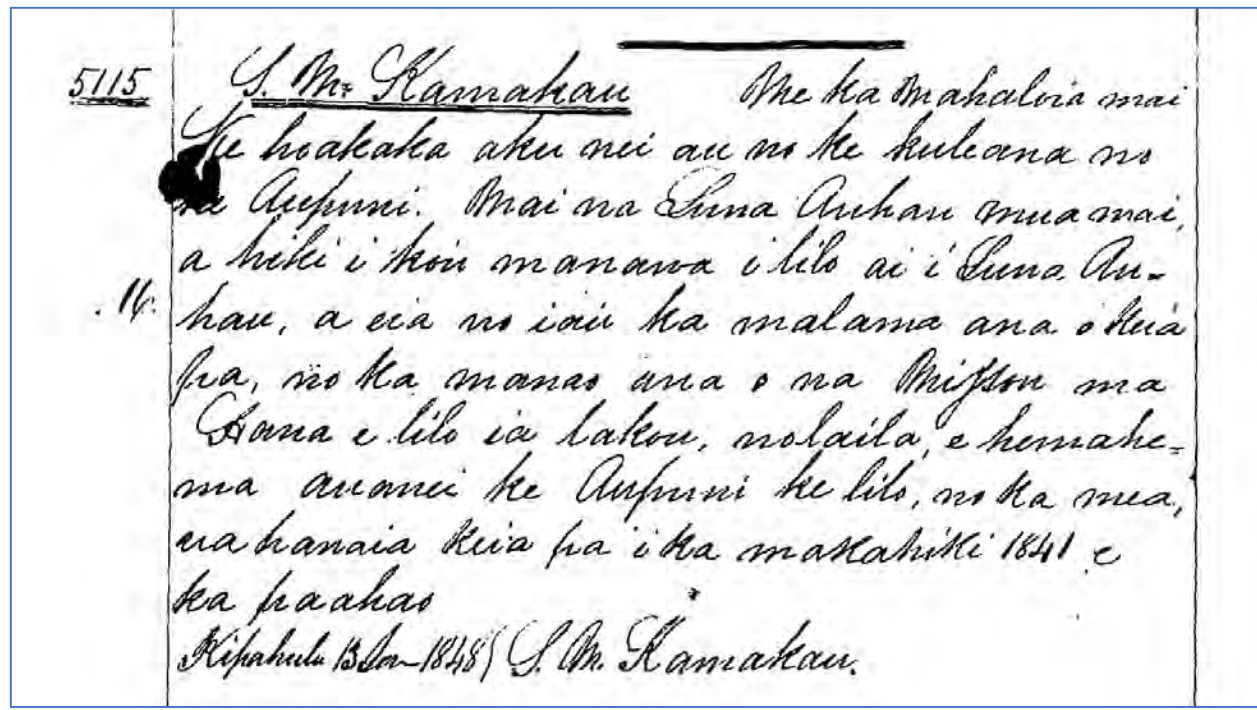 5115 S. M. Kamakau Me ka Mahaloia mai
Ke hoakaka aku nei au no ke kuleana no
ke Aupuni. Mai na Luna Auhau mua mai,
a hiki i koú manawa i lilo ai i Luna Au-
.16. hau, a eia no iaú ka malama ana o keia
pa, no ka manao ana o na Misson ma
Hana e lilo ia lakou, nolaila, e hemahe-
ma auanei ke Aupuni ke lilo, no ka mea,
ua hanaia keia pa i ka makahiki 1841 e
ka paahao
Kipahulu 13 Jan 1848 / S. M. Kamakau.